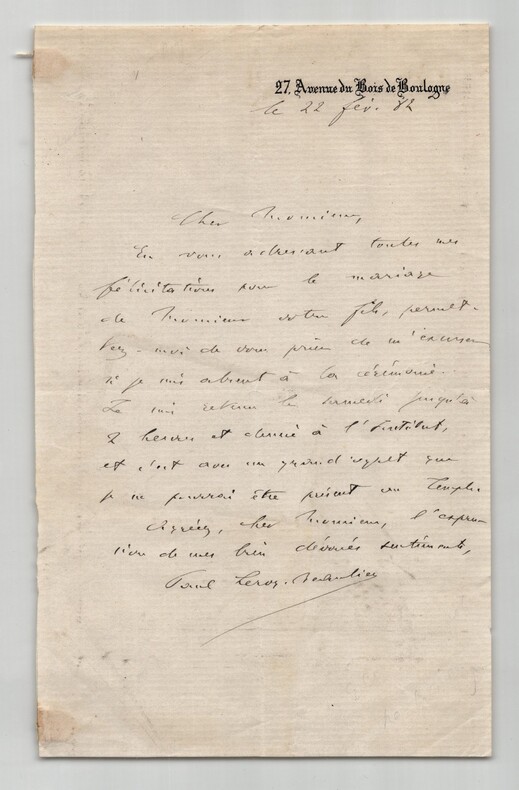 27, Avenue du Bois de Boulogne
le 22 fév. 82
Cher Monsieur,
En vous adressant toutes mes
félicitations pour le mariage
de Monsieur votre fils, permet-
tez-moi de vous prier de m'excuser
si je suis absent à la cérémonie.
Je suis retenu le samedi jusqu'à
2 heures et demie à l'Institut,
et c'est avec un grand regret que
je ne pourrai être présent au Temple.
Agréez, cher Monsieur, l'expres-
sion de mes bien dévoués sentiments,
Paul Leroy-Beaulieu